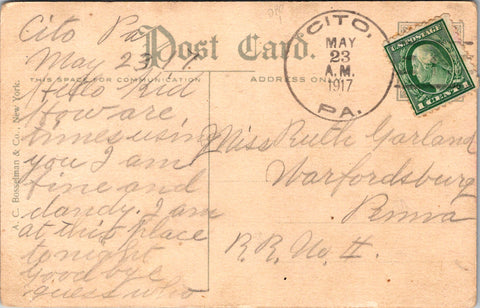 Post Card.
THIS SPACE FOR COMMUNICATION
ADDRESS ONLY
Cito Pa
May 23,
Hello Kid
How are
times using
you I am
fine and
dandy. I am
at this place
tonight
good bye
guess who
CITO,
MAY
23
A.M.
1917
PA.
U.S. POSTAGE
1 CENT 1
Miss Ruth Garland
Warfordsburg
Penna
R.R. No
C. Bosselman & Co., New York.